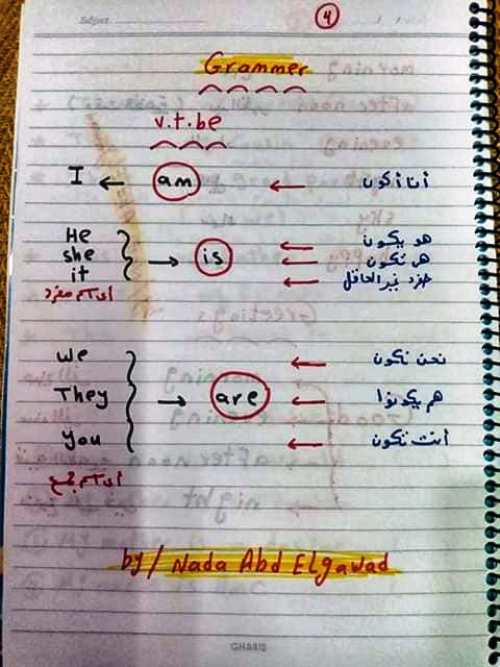 Subject
4
Grammer
v.t.be
I ← am ← أنا أكون
He هو يكون
she → is ← هى تكون
it مفرد غير العاقل
أى اسم مفرد
we نحن نكون
They → are ← هم يكونوا
you أنت تكون
أى اسم جمع
by/ Nada Abd Elgawad